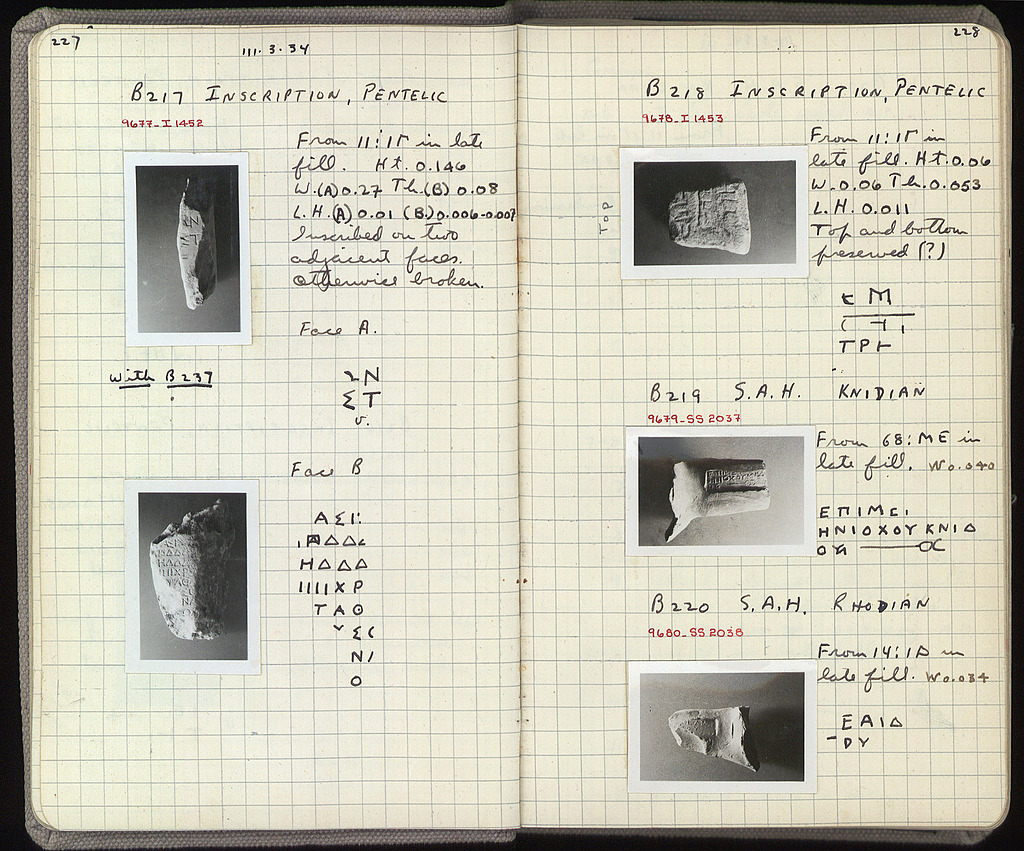 227
111.3.34
B217 INSCRIPTION, PENTELIC
9677-I 1452
From 11:IΓ in late
fill. Ht. 0.146
W.(A) 0.27 Th.(B) 0.08
L.H.(A) 0.01 (B) 0.006-0.007
Inscribed on two
adjacent faces.
otherwise broken.
Face A.
With B237
Ν
Σ Τ
v.
Face B
Α Σ Ι :
Δ Δ
Η Δ Δ Δ
Ι Ι Ι Ι Χ Ρ
Τ Α Θ
Σ (
Ν /
Ο
228
B218 INSCRIPTION, PENTELIC
9678-I 1453
TOP
From 11:IΓ in
late fill. Ht. 0.06
W. 0.06 Th. 0.053
L.H. 0.011
Top and bottom
preserved (?)
Μ
Τ Ρ Ͱ
B219 S.A.H. KNIDIAN
9679-SS 2037
From 68:ME in
late fill. W 0.040
ΕΠΙΜΕΙ
ΗΝΙΟΧΟΥ ΚΝΙΔ
B220 S.A.H. RHODIAN
9680-SS 2038
From 14:IΔ in
late fill. W 0.034
Ε Α Ι Δ